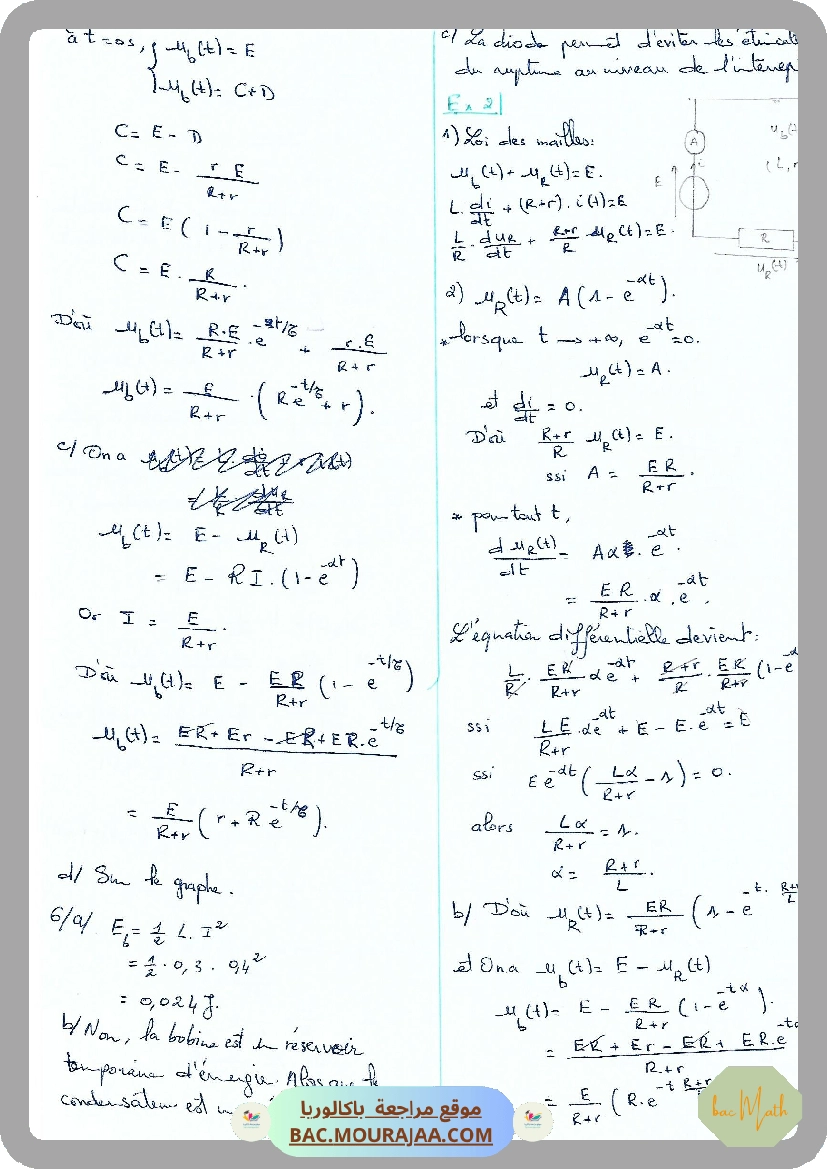 à t=0s, { u_b(t) = E
{ u_b(t) = C+D
C = E - D
C = E - r E / R+r
C = E ( 1 - r / R+r )
C = E . R / R+r .
D'où u_b(t) = R.E / R+r . e^-t/τ + r.E / R+r
u_b(t) = E / R+r . ( R e^-t/τ + r ).
c/ On a
u_b(t) = E - u_R(t)
= E - R I . (1 - e^-αt)
Or I = E / R+r .
D'où u_b(t) = E - E R / R+r (1 - e^-t/τ)
u_b(t) = ER + Er - ER + ER.e^-t/τ / R+r
= E / R+r ( r + R e^-t/τ ).
d/ Sur le graphe.
6/a/ E_b = 1/2 L. I²
= 1/2 . 0,3 . 0,4²
= 0,024 J.
b/ Non, la bobine est un réservoir
temporaire d'énergie. Alors que le
condensateur est un
c/ La diode permet d'éviter les étincel
du rupture au niveau de l'interrup
Ex 2
1) Loi des mailles:
u_b(t) + u_R(t) = E.
L. di/dt + (R+r) . i(t) = E
L/R . du_R/dt + R+r/R . u_R(t) = E.
A
i
E
u_b(t)
(L, r
R
u_R(t)
2) u_R(t) = A (1 - e^-αt).
* lorsque t → +∞, e^-αt = 0.
u_R(t) = A.
et di/dt = 0.
D'où R+r/R u_R(t) = E.
ssi A = E R / R+r .
* pour tout t,
d u_R(t)/dt = A α . e^-αt .
= E R / R+r . α . e^-αt .
L'équation différentielle devient:
L/R . ER / R+r α e^-αt + R+r/R . ER / R+r (1 - e^-α
ssi L E / R+r . α e^-αt + E - E. e^-αt = E
ssi E e^-αt ( Lα / R+r - 1 ) = 0.
alors Lα / R+r = 1.
α = R+r / L .
b/ D'où u_R(t) = ER / R+r ( 1 - e^-t. R+r/L
et On a u_b(t) = E - u_R(t)
u_b(t) = E - E R / R+r (1 - e^-tα).
= ER + Er - ER + ER.e^-tα / R+r
= E / R+r ( R.e^-t R+r
موقع مراجعة باكالوريا
BAC.MOURAJAA.COM
bac Math